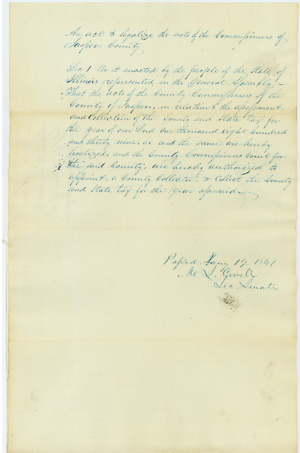 An act to legalize the acts of the Commissioners of
Jasper County
Sec. 1 Be it enacted by the people of the State of
Illinois represented in the General Assembly
That the acts of the County Commissioners of the
County of Jasper, in relation to the assessment
and Collection of the County and State tax for
the year of our Lord one thousand eight hundred
and thirty nine, be and the same are hereby
legalized, and the County Commissioners Court for
the said County are hereby authorized to
appoint a County Collector to Collect the County
and State tax for the year aforesaid
Passed 19, 1841
Sec Senate